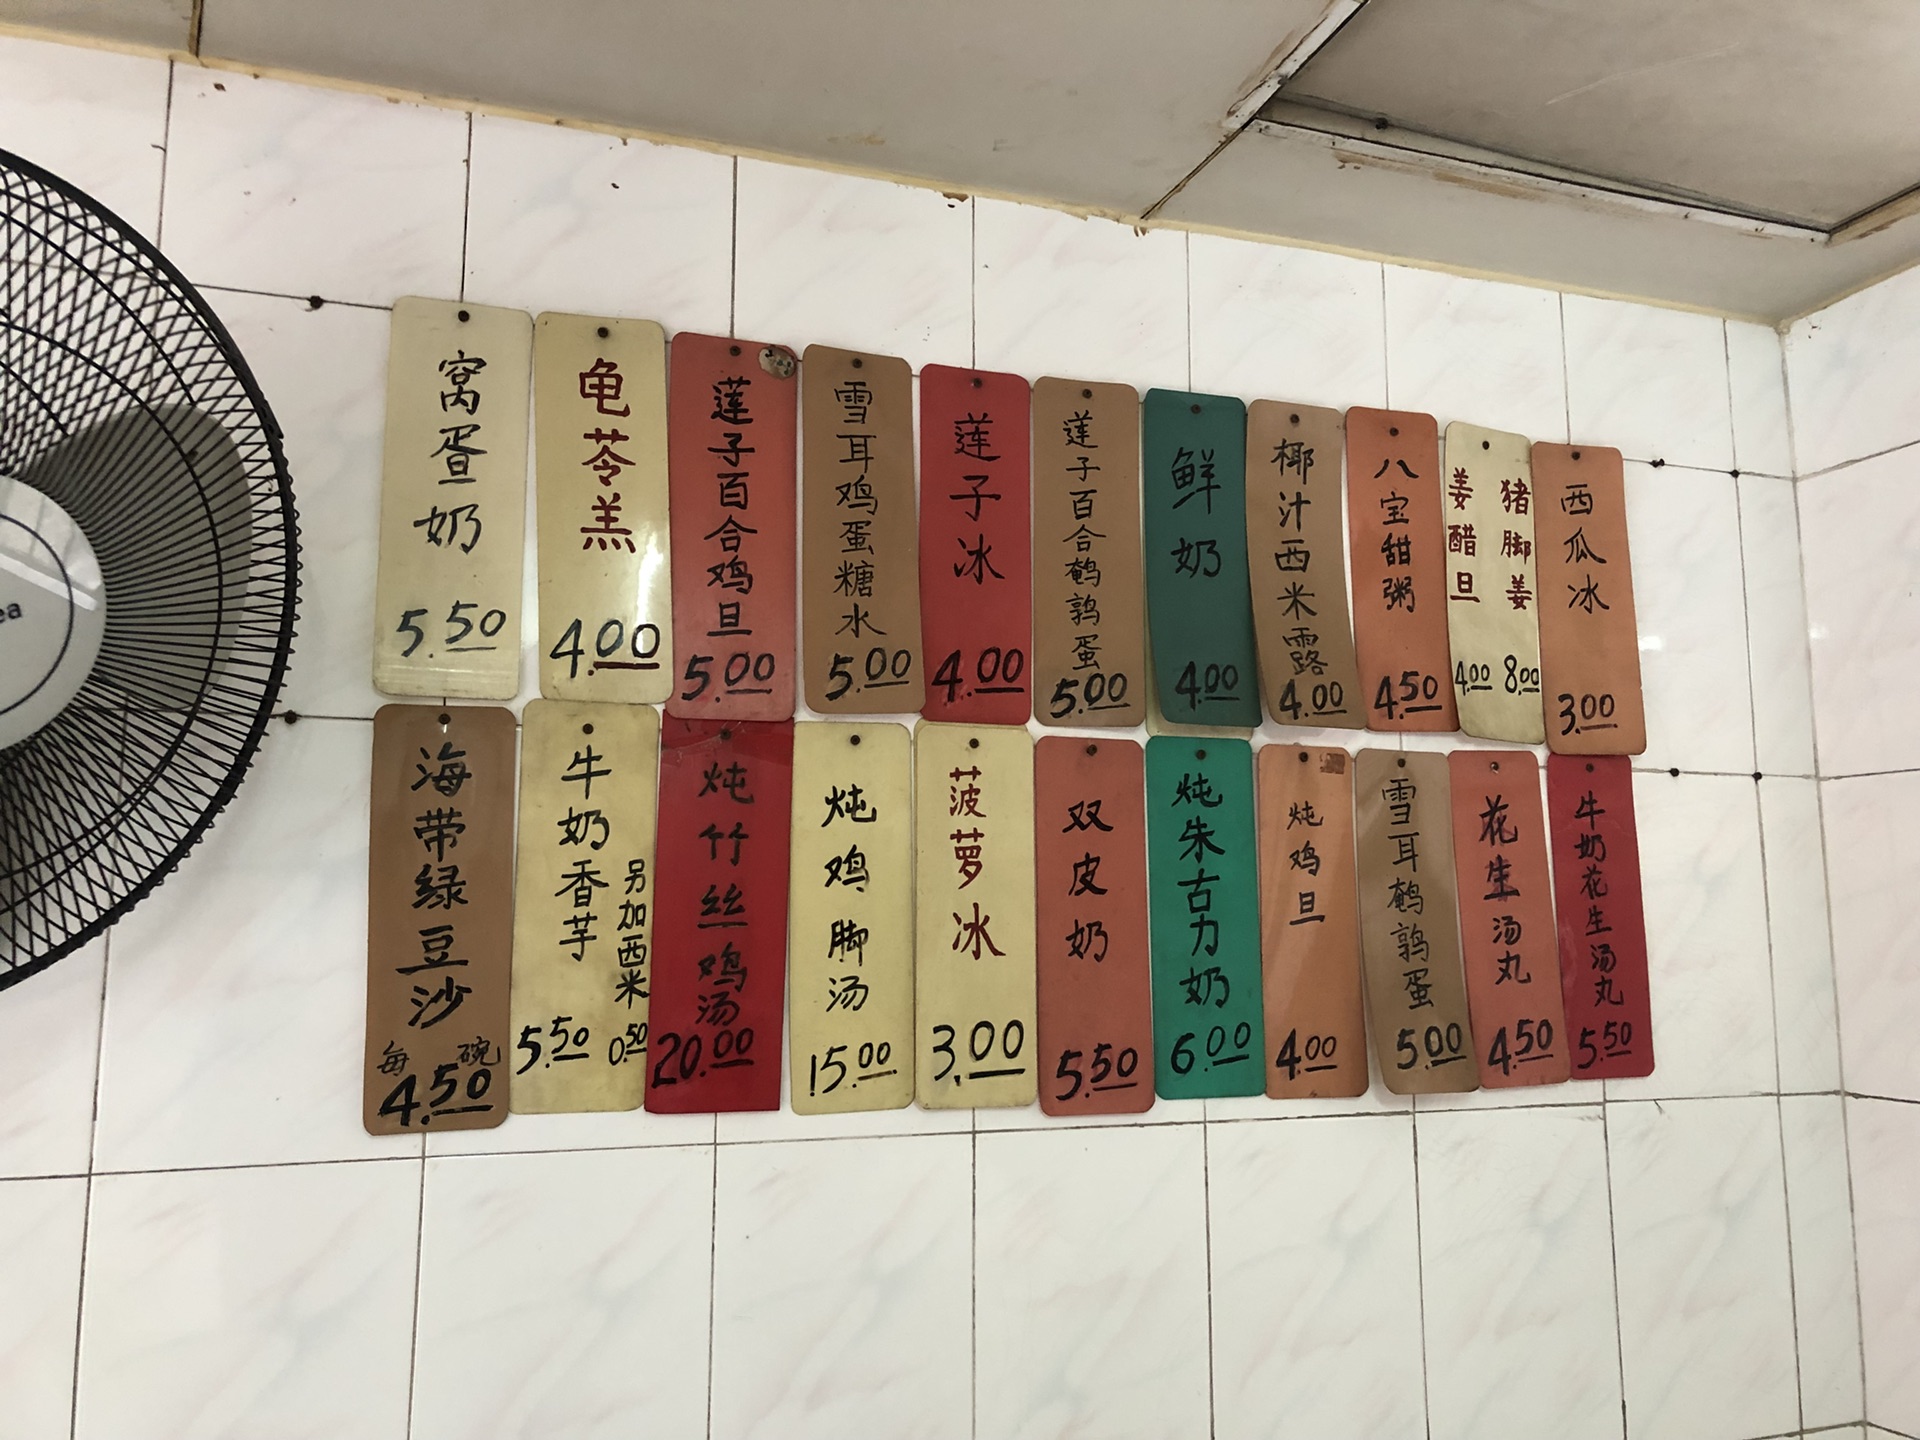 窝蛋奶
5.50
龟苓羔
4.00
莲子百合鸡旦
5.00
雪耳鸡蛋糖水
5.00
莲子冰
4.00
莲子百合鹌鹑蛋
5.00
鲜奶
4.00
椰汁西米露
4.00
八宝甜粥
4.50
姜醋旦
4.00
猪脚姜
8.00
西瓜冰
3.00
海带绿豆沙
每碗
4.50
牛奶香芋
5.50
另加西米
0.50
炖竹丝鸡汤
20.00
炖鸡脚汤
15.00
菠萝冰
3.00
双皮奶
5.50
炖朱古力奶
6.00
炖鸡旦
4.00
雪耳鹌鹑蛋
5.00
花生汤丸
4.50
牛奶花生汤丸
5.50
ea